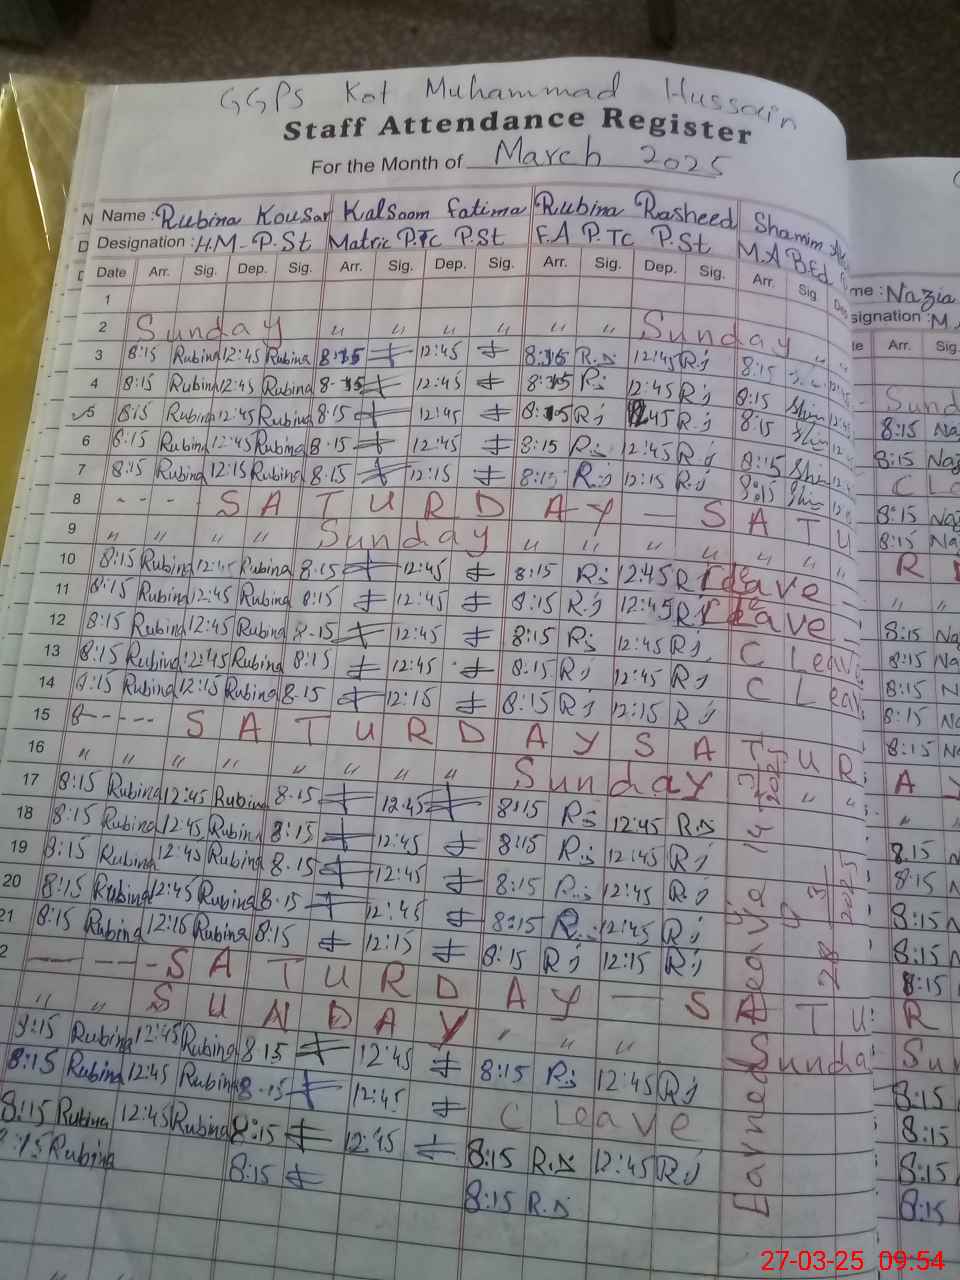 GGPS Kot Muhammad Hussain
Staff Attendance Register
For the Month of March 2025
Name : Rubina Kousar Kalsoom Fatima Rubina Rasheed Shamim
Designation : H.M - P.St Matric P.Tc P.St F.A P.Tc P.St M.A B.Ed
Date Arr. Sig. Dep. Sig. Arr. Sig. Dep. Sig. Arr. Sig. Dep. Sig. Arr. Sig Dep
1
2 Sunday " " " " " Sunday "
3 8:15 Rubina 12:45 Rubina 8:15 12:45 8:15 R.s 12:45 R.j 8:15
4 8:15 Rubina 12:45 Rubina 8-15 12:45 8:15 R.j 12:45 R.j 8:15 Shim
5 8:15 Rubina 12:45 Rubina 8:15 12:45 8:15 R.j 12:45 R.j 8:15 Shim
6 8:15 Rubina 12:45 Rubina 8.15 12:45 8:15 R.j 12:45 R.j 8:15 Shim
7 8:15 Rubina 12:15 Rubina 8.15 12:15 8:15 R.j 12:15 R.j 8:15 Shim
8 - - - SATURDAY - SATU
9 " " " " Sunday " " " " " " "
10 8:15 Rubina 12:45 Rubina 8.15 12:45 8:15 R.j 12:45 R Leave -
11 8:15 Rubina 12:45 Rubina 8:15 12:45 8:15 R.j 12:45 R.j Leave -
12 8:15 Rubina 12:45 Rubina 8.15 12:45 8:15 R.j 12:45 R.j C Leave
13 8:15 Rubina 12:45 Rubina 8:15 12:45 8.15 R.j 12:45 R.j C Leav
14 8:15 Rubina 12:15 Rubina 8.15 12:15 8:15 R.j 12:15 R.j
15 - - - - SATURDAY SATUR
16 " " " " " " " " Sunday " "
17 8:15 Rubina 12:45 Rubina 8.15 12.45 8:15 R.j 12:45 R.s
18 8:15 Rubina 12:45 Rubina 8:15 12:45 8:15 R.j 12:45 R.j
19 8:15 Rubina 12:45 Rubina 8.15 12:45 8:15 R.j 12:45 R.j
20 8:15 Rubina 12:45 Rubina 8.15 12:45 8:15 R. 12:45 R.j
21 8:15 Rubina 12:15 Rubina 8:15 12:15 8:15 R.j 12:15 R.j
2 - - - - SATURDAY - SATU
" " SUNDAY " " " Sunda
8:15 Rubina 12:45 Rubina 8.15 12:45 8:15 R.j 12:45 R.j
8:15 Rubina 12:45 Rubina 8.15 12:45 C Leave
8:15 Rubina 12:45 Rubina 8:15 12:45 8:15 R.s 12:45 R.j
8:15 Rubina 8:15 8:15 R.s
Earned Leave 14 3 2025
28 3 2025
me : Nazia
signation : M.
te Arr. Sig.
Sund
8:15 Na
8:15 Naz
C Le
8:15 Na
8:15 Na
R
" "
8:15 Na
8:15 Na
8:15 N
8:15 No
8:15 N
A Y
"
8.15 N
8:15
8:15
8:15
8:15
R
Sun
8:15
8:15
8:15
8:15
27-03-25 09:54